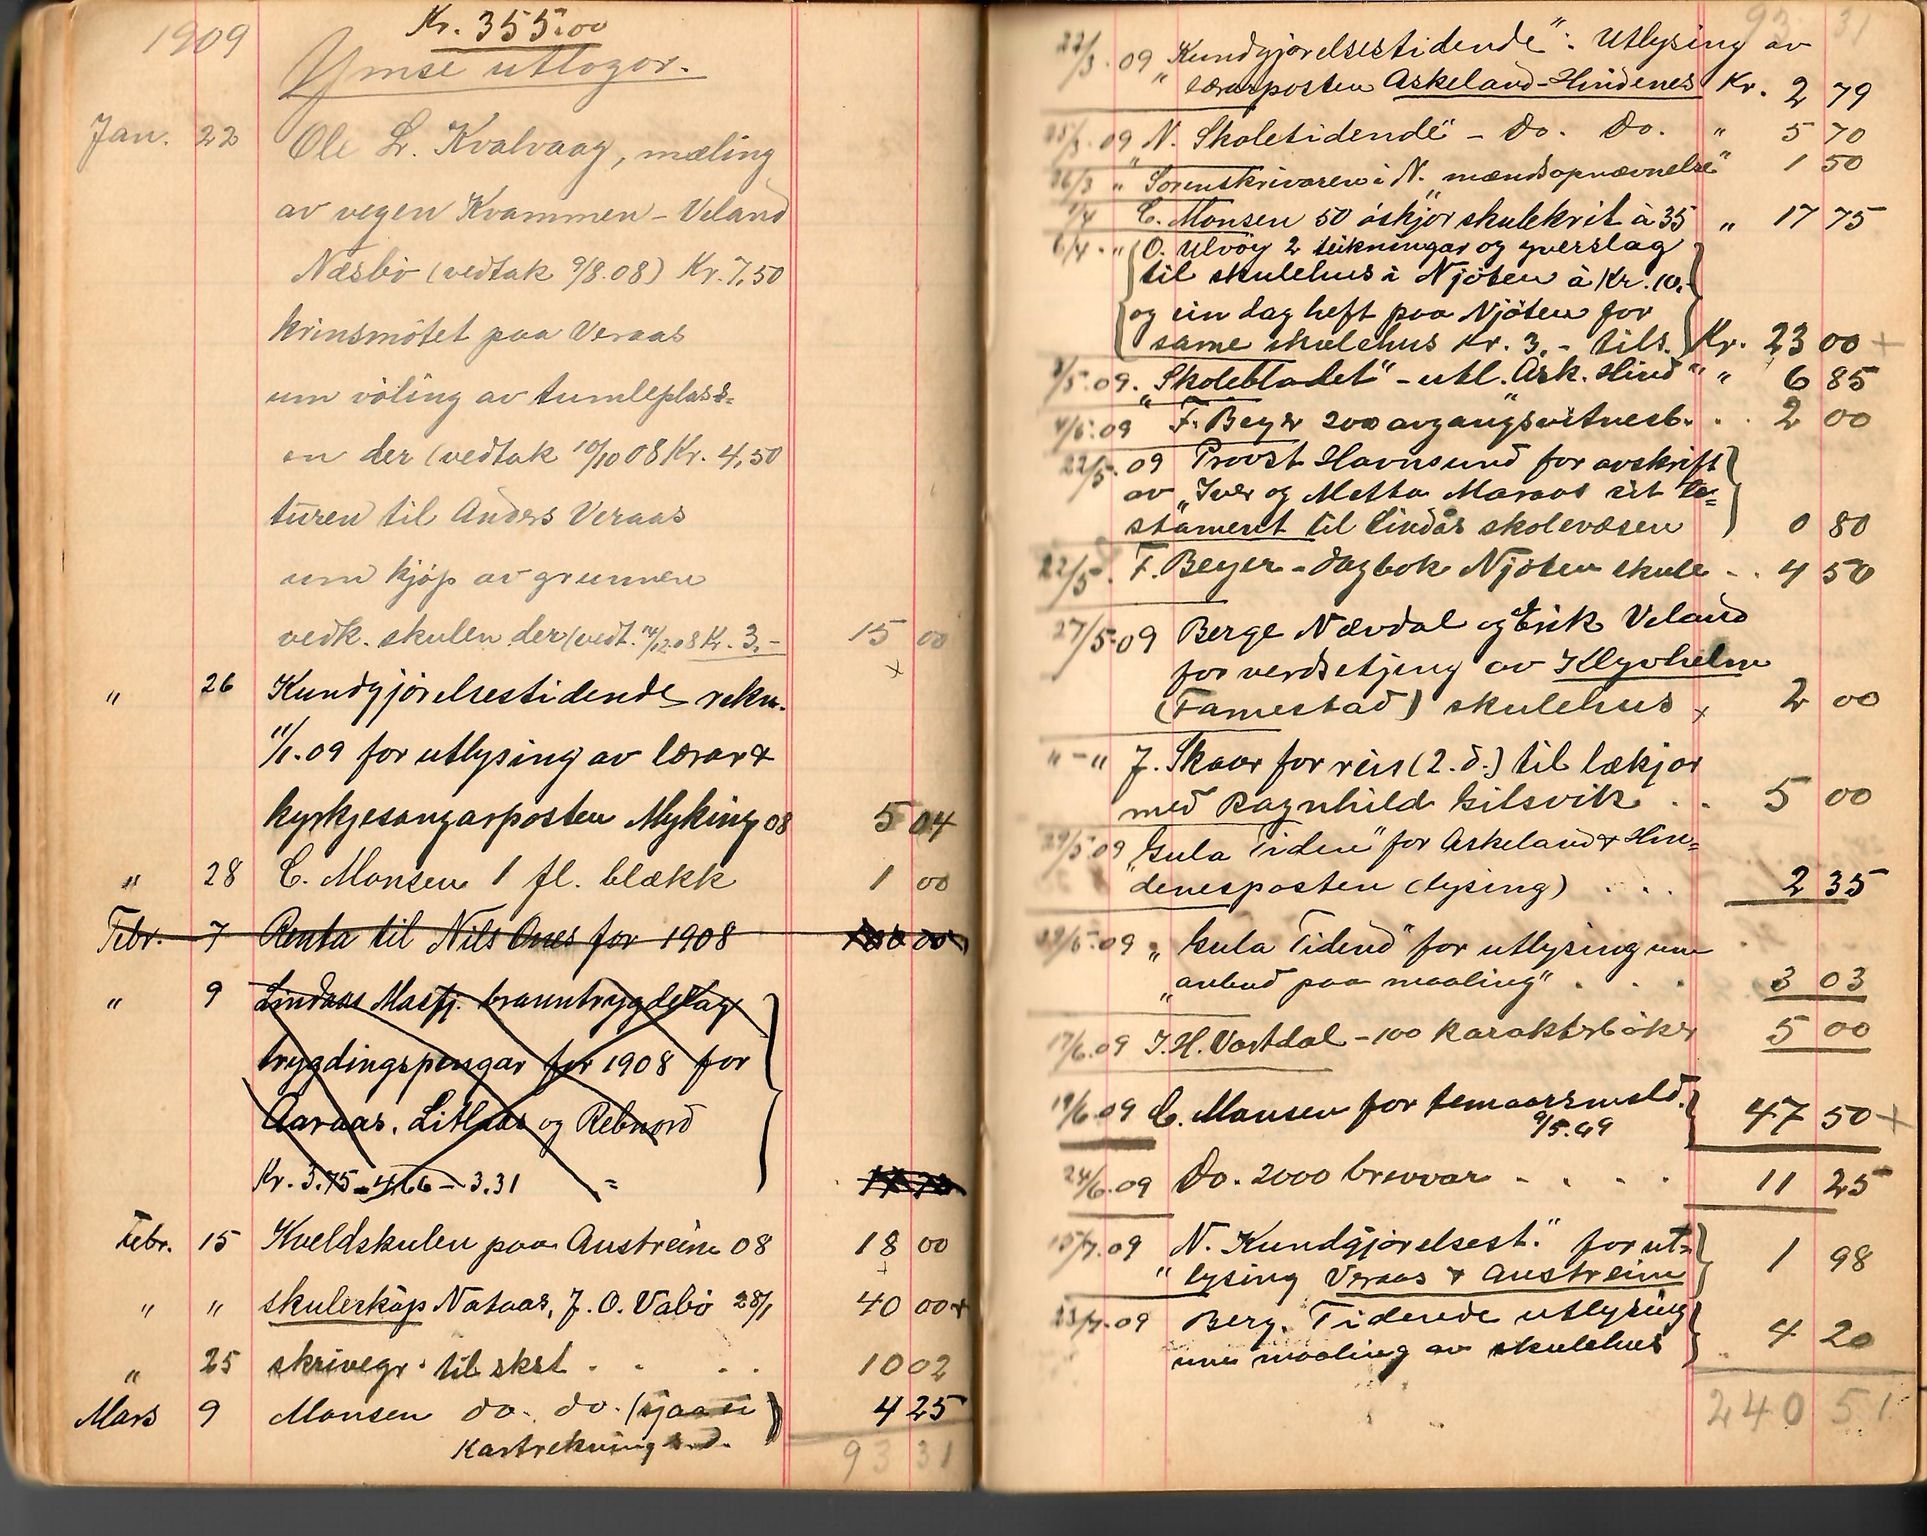 1909 Kr. 355.00
Ymse utlogor.
Jan. 22 Ole L. Kvalvaag, mæling
av vegen Kvammen - Veland
Næsbö (vedtak 9/8.08) Kr. 7,50
krinsmötet paa Veraas
um völing av tumleplass-
en der (vedtak 10/10 08 Kr. 4,50
turen til Anders Veraas
um kjöp av grunnen
vedk. skulen der (vedt. 14/12.08 Kr. 3,- 15 00
" 26 Kundgjörelsestidende rekn.
11/1.09 for utlysing av lærar &
kyrkjesongarposten Myking 08 5 04
" 28 C. Monsen 1 fl. blækk 1 00
Febr. 7 Renta til Nils Ones for 1908
" 9 Lindaas Masfj. branntrygdelag
trygdingspengar for 1908 for
Aaraas, Litlaas og Rebnord
Kr. 3.75 - 4,66 - 3.31 =
Febr. 15 Kveldskulen paa Austreim 08 18 00
" " skuleskåp Nataas, J. O. Vabö 28/1 40 00 +
" 25 skrivegr. til skst . . . . 10 02
Mars 9 Monsen do. do. (sjaa ei 4 25
Kartrekning
93 31
93 31
22/3.09 "Kundgjörelsestidende": Utlysing av
lærarposten Askeland-Hindenes Kr. 2 79
25/3.09 "N. Skoletidende" - Do. Do. " 5 70
26/3 " Sorenskrivaren i N. mændsopnævnelse " 1 50
1/4 C. Monsen 50 öskjor skulekrit à 35 " 17 75
6/4 - " O. Ulvöy 2 teikningar og yverslag
til skulehus i Njöten à Kr. 10,-
og ein dag heft paa Njöten for
same skulehus Kr. 3,- tils. Kr. 23 00 +
3/5.09. "Skolebladet" - utl. Ask. Hind " " 6 85
4/5.09 F. Beyer 200 avgangsvitnesb. . . 2 00
22/5.09 Provst Havnsund for avskrift
av "Iver og Metta Maraas sit te-
stament" til Lindås skolevæsen 0 80
22/5. F. Beyer - dagbok Njöten skule - . 4 50
27/5.09 Berge Nævdal og Erik Veland
for verdsetjing av Klyvheim
(Famestad) skulehus + 2 00
" - " J. Skaar for reis (2. d.) til lækjar
med Ragnhild Gilsvik . . 5 00
29/5.09 "Gula Tidend" for Askeland & Hin-
denesposten (lysing) . . . 2 35
29/5.09 "Gula Tidend" for utlysing um
"anbud paa maaling" . . . 3 03
17/6.09 J. H. Vastdal - 100 karakterböker 5 00
19/6.09 C. Monsen for femaarsmeld. 47 50 +
9/5.09
24/6.09 Do. 2000 brevvar - . . . 11 25
15/7.09 "N. Kundgjörelsest." for ut-
lysing Veraas & Austreim 1 98
23/7.09 Berg. Tidende utlysing
um maaling av skulehus 4 20
240 51